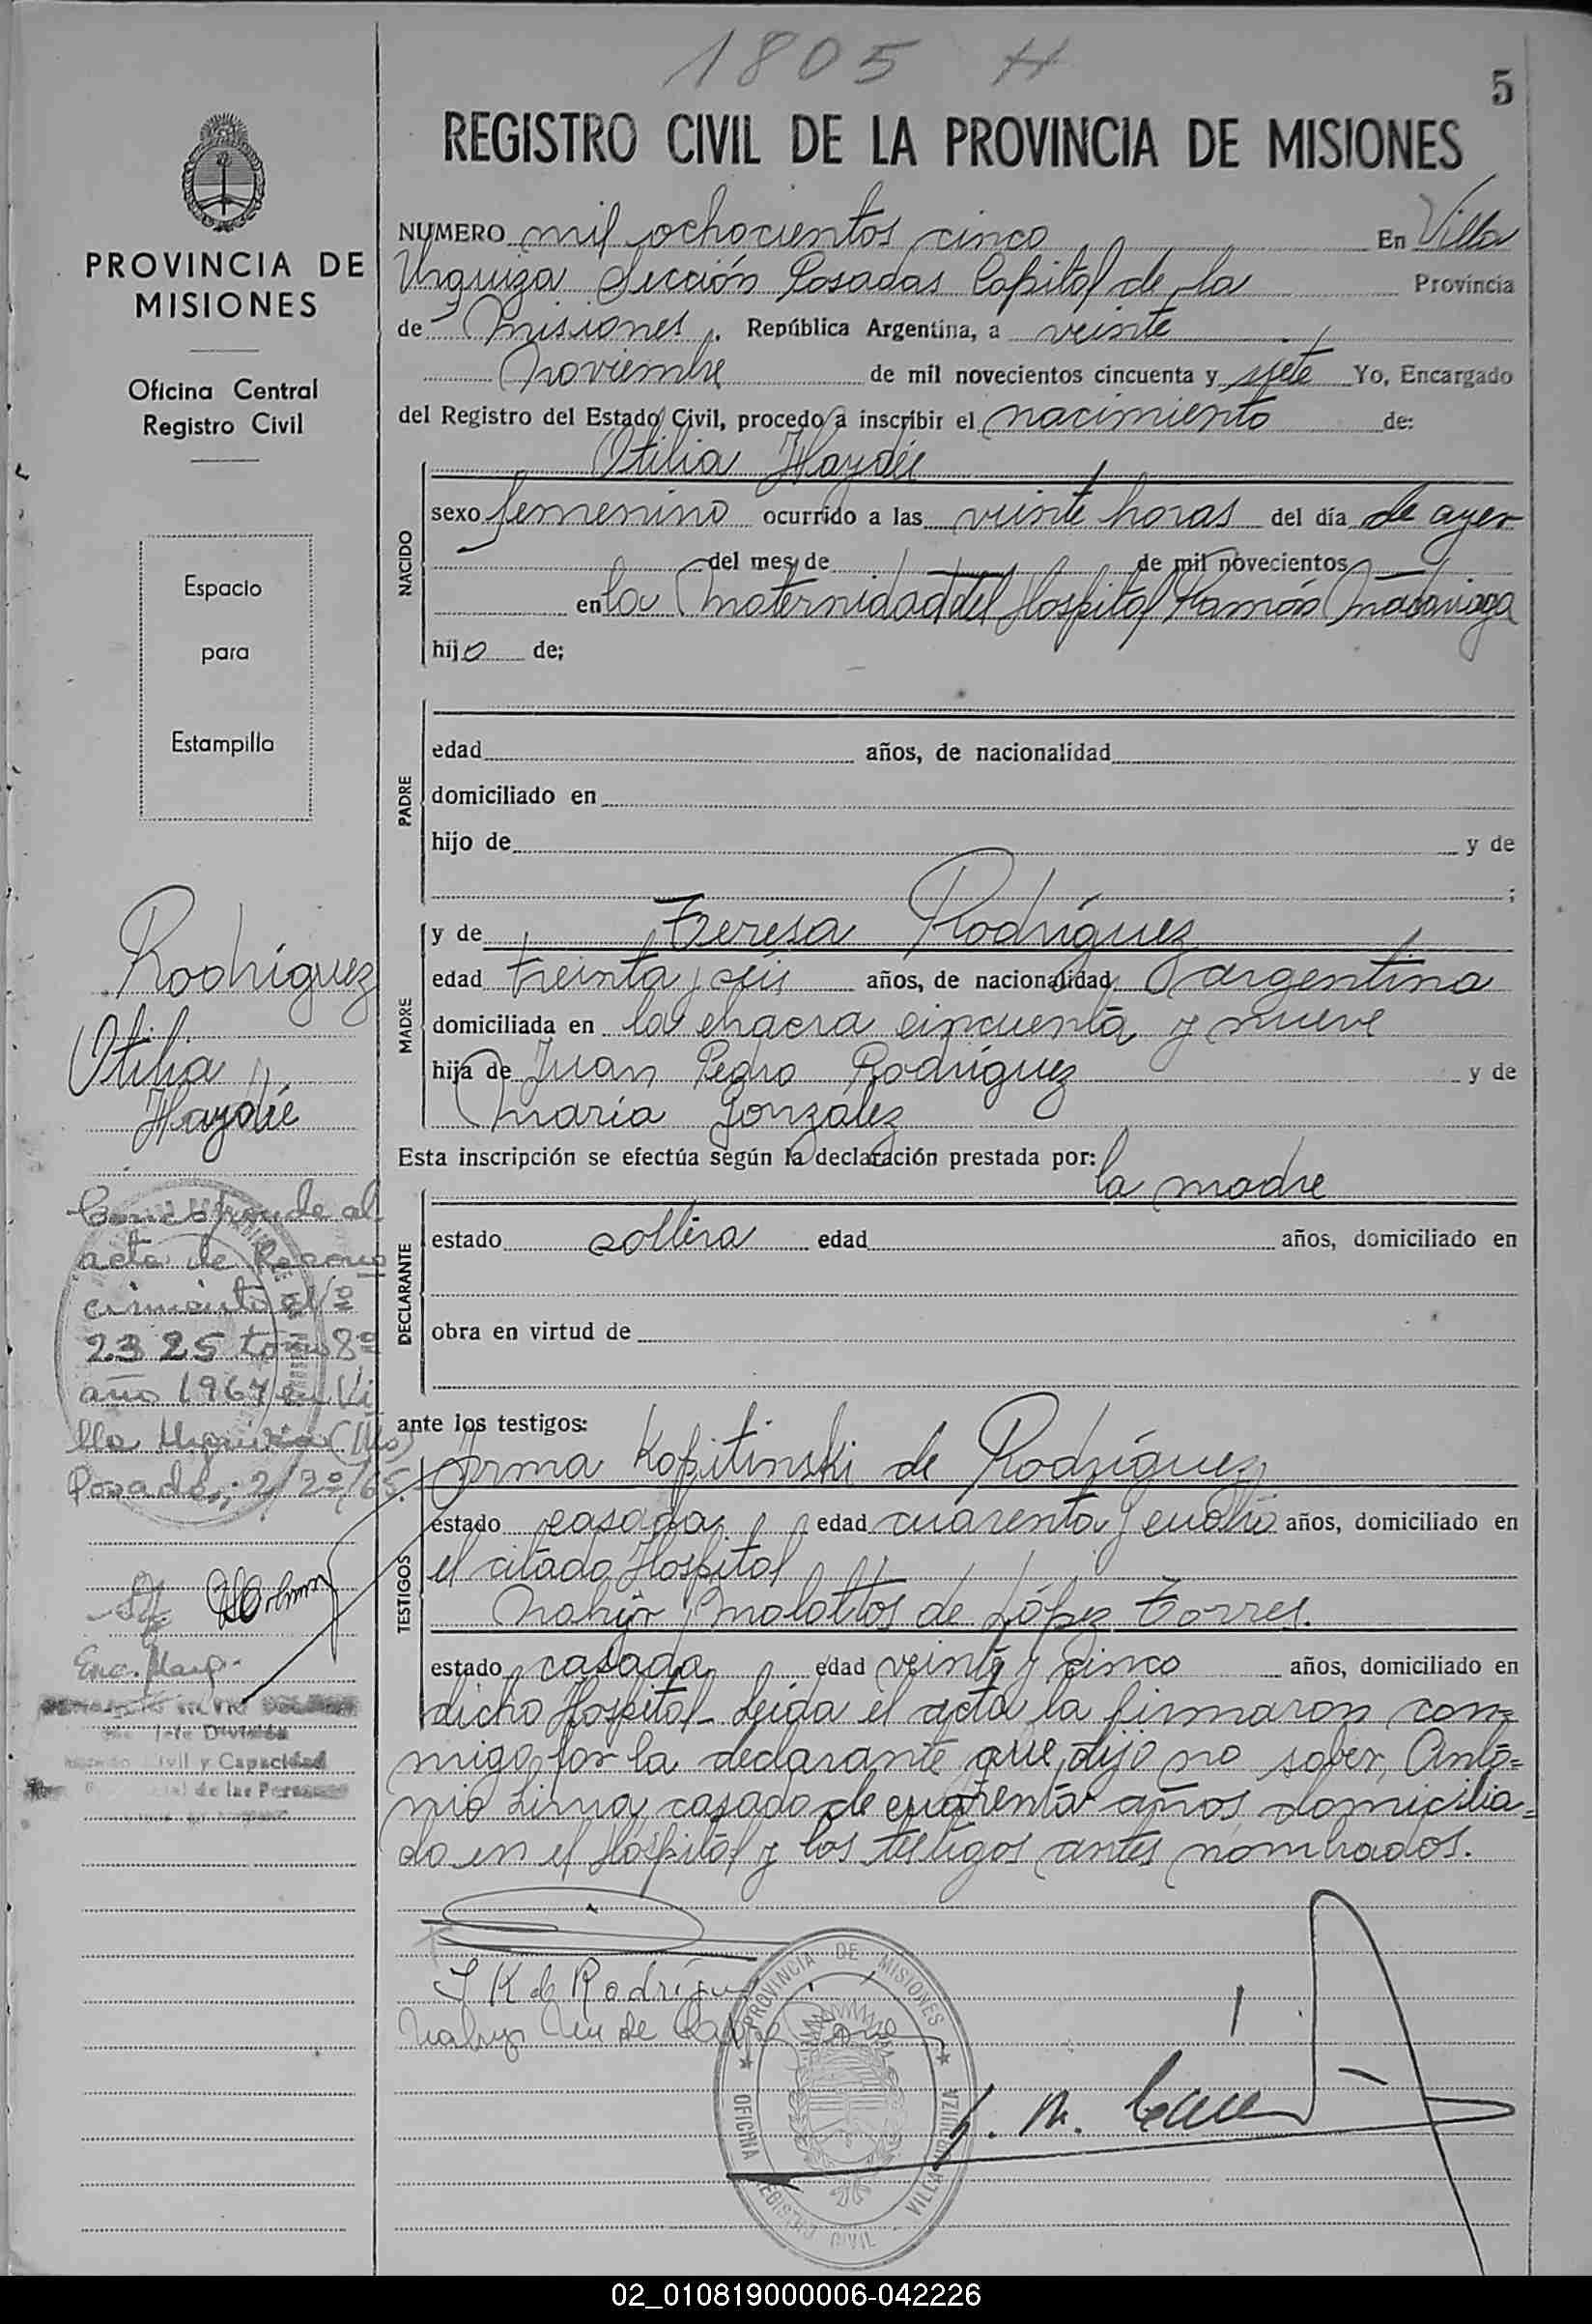 1805 H
5
REGISTRO CIVIL DE LA PROVINCIA DE MISIONES
PROVINCIA DE
MISIONES
Oficina Central
Registro Civil
Espacio
para
Estampilla
NUMERO mil ochocientos cinco En Villa
Urquiza Sección Posadas Capital de la Provincia
de Misiones. República Argentina, a veinte
Noviembre de mil novecientos cincuenta y siete Yo, Encargado
del Registro del Estado Civil, procedo a inscribir el nacimiento de:
NACIDO
Otilia Haydée
sexo femenino ocurrido a las veinte horas del día de ayer
del mes de de mil novecientos
en la Maternidad del Hospital Ramón Madariaga
hijo de;
PADRE
edad años, de nacionalidad
domiciliado en
hijo de y de
;
MADRE
y de Teresa Rodríguez
edad treinta y seis años, de nacionalidad argentina
domiciliada en la chacra cincuenta y nueve
hija de Juan Pedro Rodríguez y de
María González
Esta inscripción se efectúa según la declaración prestada por:
la madre
DECLARANTE
estado soltera edad años, domiciliado en
obra en virtud de
ante los testigos:
TESTIGOS
Irma Kopitinski de Rodríguez
estado casada edad cuarenta y cuatro años, domiciliado en
el citado Hospital
Nahyr Molottos de López Torres.
estado casada edad veinte y cinco años, domiciliado en
dicho Hospital_ Leída el acta la firmaron con=
migo por la declarante que dijo no saber, Anto=
nio Lima casado de cuarenta años domicilia=
do en el Hospital y los testigos antes nombrados.
Rodríguez
Otilia
Haydée
Corresponde al
acta de Recono
cimiento Nº
2325 tomo 8º
año 1964 en Vi
lla Urquiza (Ms)
Posadas, 2/3º/65.
Enc. Marg.
Jefe División
Civil y Capacidad
de las Personas
I K de Rodríguez
PROVINCIA DE MISIONES
OFICINA REGISTRO CIVIL VILLA URQUIZA
02_010819000006-042226